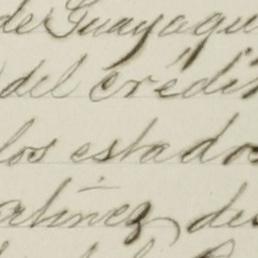 de Guayaqui
del crédit
los estados
atinez de